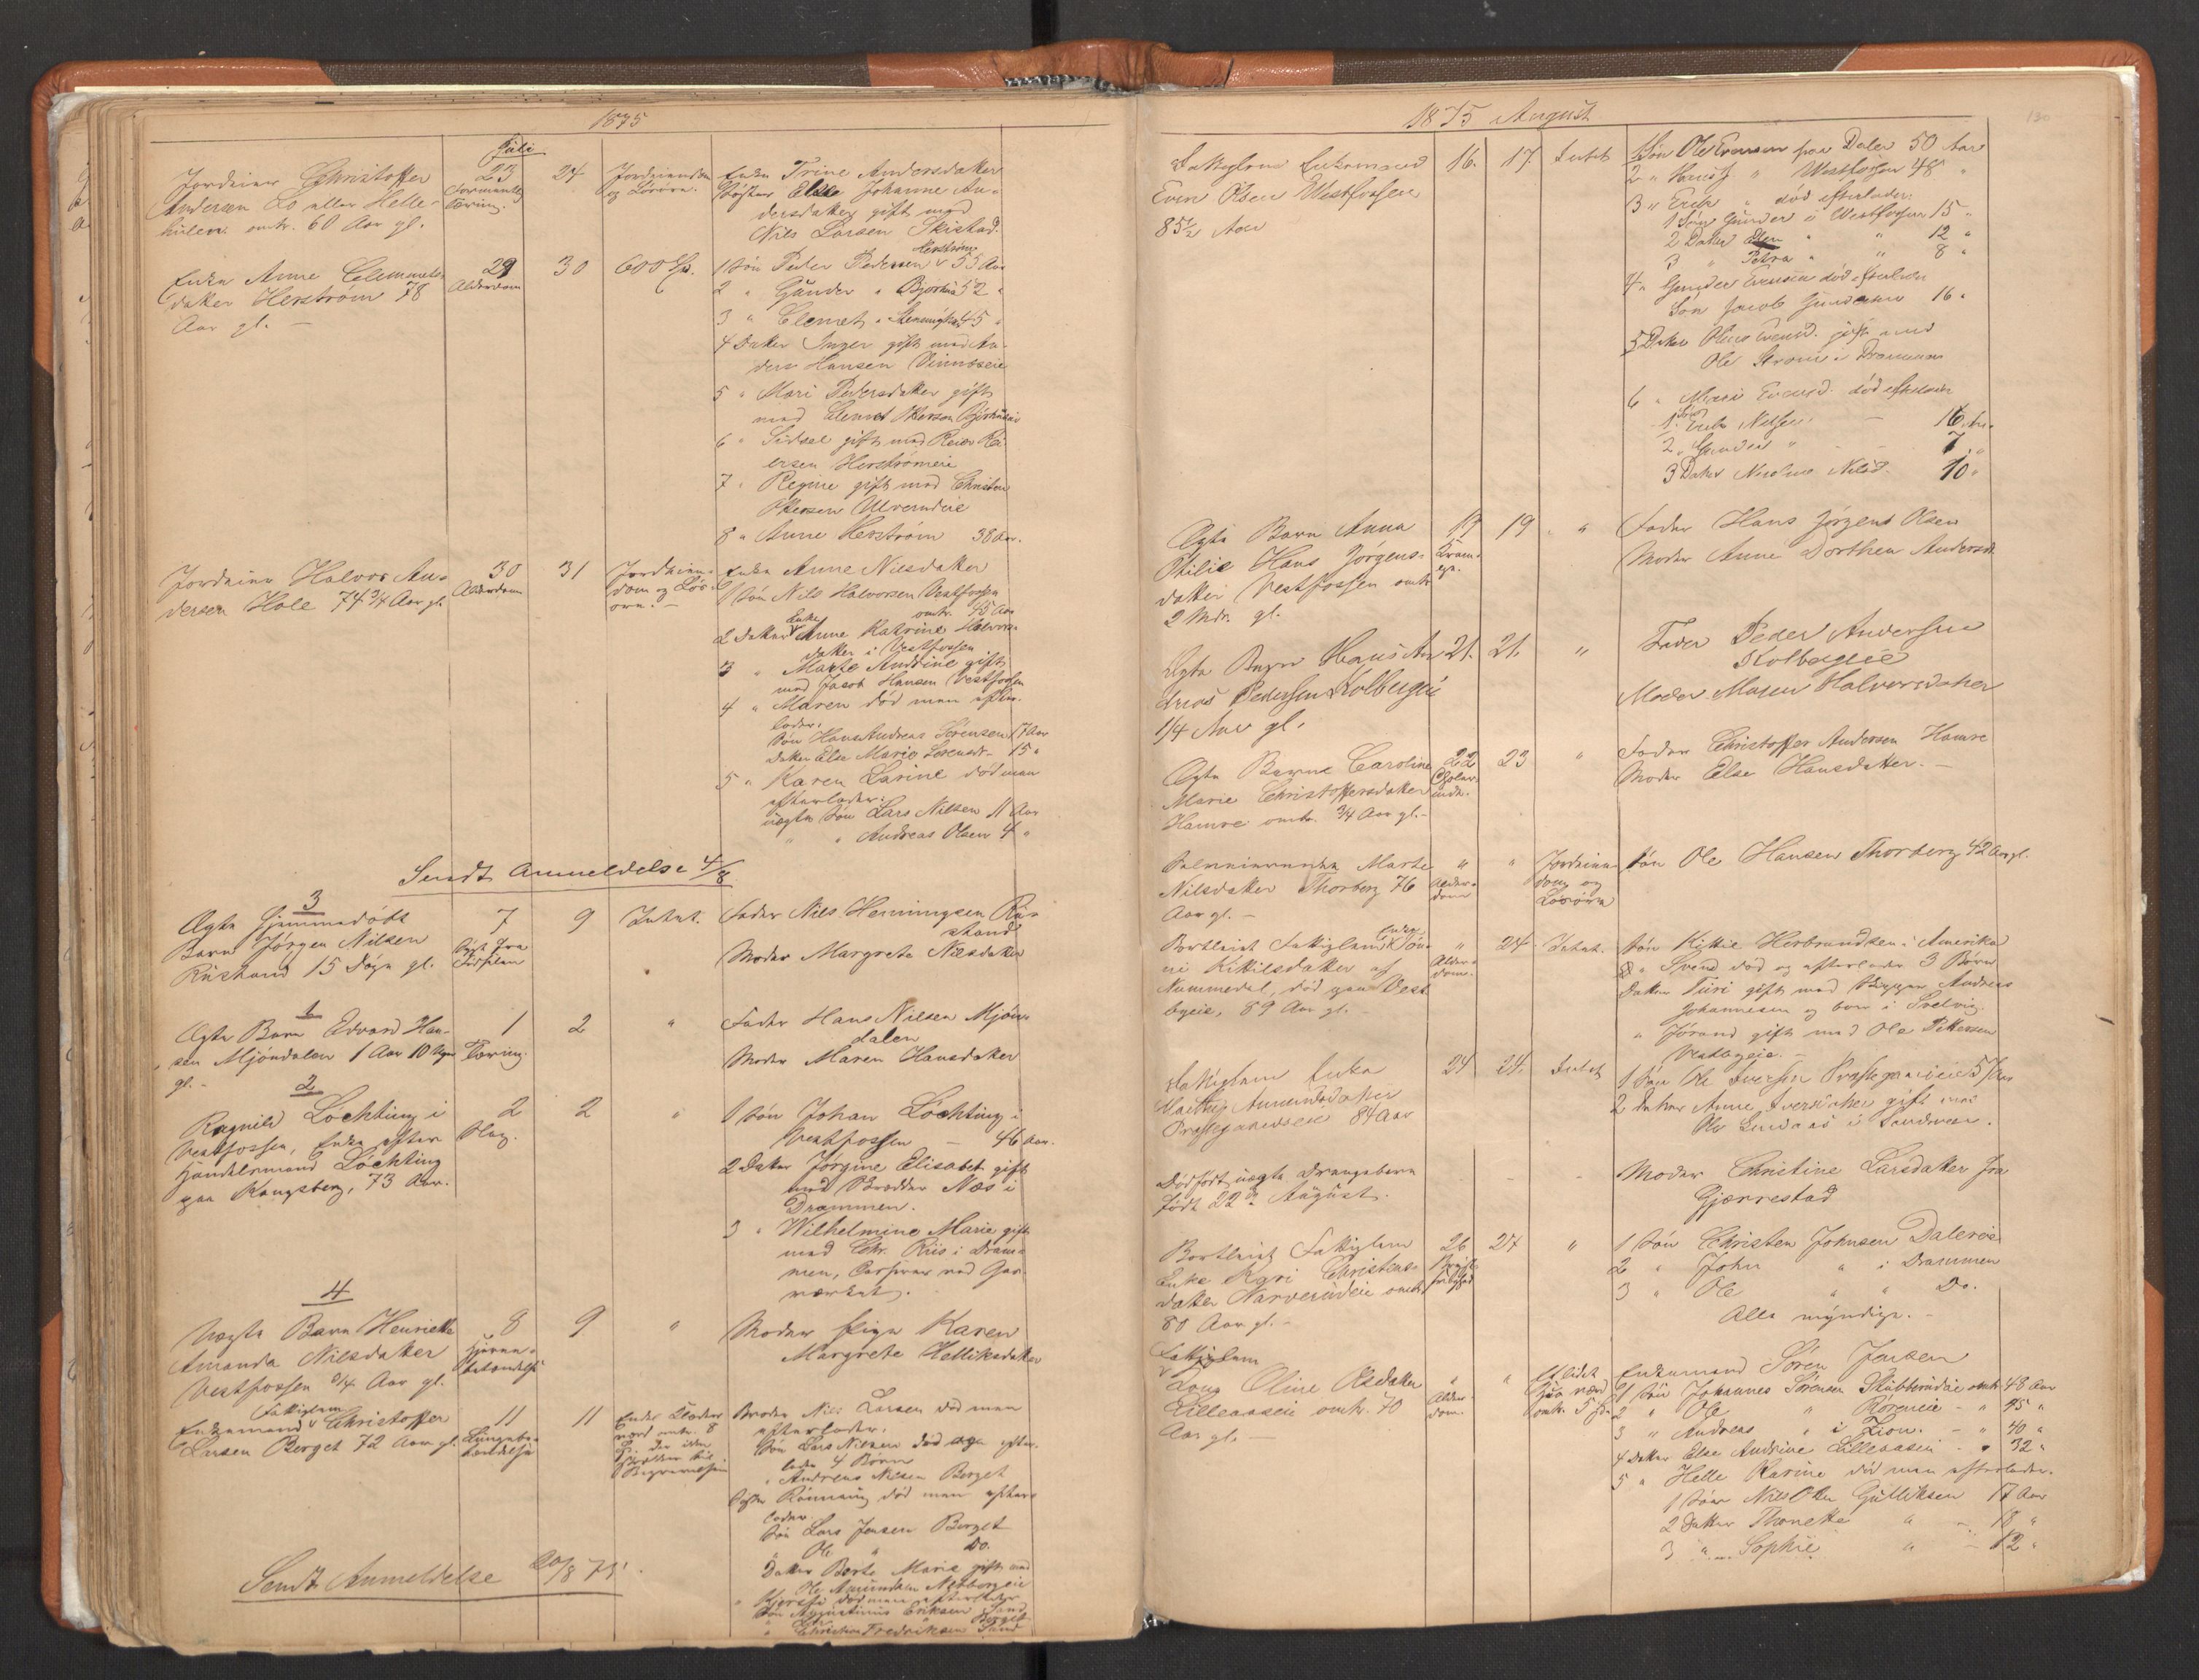 1875
Juli
Jordeier Christoffer
Andersen Lo eller Helle-
hulen omtr. 60 Aar gl.
23
Tæring
24
Jordeiendom
og Løsøre.
Enke Trine Andersdatter
Søster Else Johanne An-
dersdatter gift med
Nils Larsen Skistad.
Enke Anne Clemmets-
datter Herstrøm 78
Aar gl. —
29
Alderdom
30
600 Spd.
Herstrøm
1 Søn Peder Pedersen 55 Aar
2 " Gunder " 52 "
3 " Clemet " 45 "
4 Datter Inger gift med An-
ders Hansen
5 " Mari Pedersdatter gift
med Clemet
6 " Sidsel gift med Reier Rei-
ersen Herstrømeie
7 " Regine gift med Christen
8 " Anne Herstrøm 38 Aar.
Jordeier Halvor An-
dersen Hole 74 3/4 Aar gl.
30
Alderdom
31
Jordeien-
dom og Løs-
øre. —
Enke Anne Nilsdatter
1 Søn Nils Halvorsen Vestfossen
omtr. 45 Aar
Enke
2 Datter Anne Katrine Halvors-
datter i Vestfossen
3 " Marte Andrine gift
med Jacob Hansen Vestfossen
4 " Maren død men efter-
lader:
Søn Hans Andreas Sørensen 17 Aar
Datter Else Marie Sørensdr. 15 "
5 " Karen Larine død men
efterlader:
uægte Søn Lars Nilsen 11 Aar
" " Andreas Olsen 4 "
Sendt Anmeldelse 4/8
3
Ægte hjemmedøbt
Barn Jørgen Nilsen
Rustand 15 Døgn gl.
7
9
Intet.
Fader Nils Henningsen Ru-
stand
Moder Margrete Nilsdatter
1
Ægte Barn Edvard Han-
sen Mjøndalen 1 Aar 10
gl. -
1
Tæring
2
"
Fader Hans Nilsen Mjøn-
dalen
Moder Maren Hansdatter
2
Ragnild Løchting i
Vestfossen, Enke efter
Handelsmand Løchting
paa Kongsberg, 73 Aar.
2
Slag.
2
"
1 Søn Johan Løchting i
Vestfossen — 46 Aar.
2 Datter Jørgine Elisabet gift
med Næs i
Drammen.
3 " Wilhelmine Marie gift
med Chr. Riis i Dram-
men, ved Gas-
værket.
4
Uægte Barn Henriette
Amanda Nilsdatter
Vestfossen 3/4 Aar gl.
8
Hjerne-
betændelse
9
"
Moder Pige Karen
Margrete Helliksdatter
Fattiglem
Enkemand Christoffer
Larsen Berget 72 Aar gl.
11
Lungebe-
tændelse
11
Broder Nils Larsen død men
efterlader:
Søn Lars Nilsen død og efter-
lader 4 Børn
" Andreas Nilsen Berget
Søster Rønnaug død men efter-
lader
Søn Lars Jensen Berget
" Ole " Do.
Datter Berte Marie gift med
Ole Amundsen
Søn Augustinus Eriksen Sand
Berget
" Christian Fredriksen Sand
Sendt Anmeldelse 20/8 75.
1875 August
130
Fattiglem Enkemand
Even Olsen Westfossen
85½ Aar
16.
17
Intet
1 Søn Ole Evensen paa Daler 50 Aar
2 " " Westfossen 48 "
3 " Erik " død efterlader:
1 Søn Gunder i Westfossen 15 "
2 Datter Ellen " " 12 "
3 " Petra " " 8 "
4 " Gunder Evensen død efterlader
Søn Jacob Gundersen 16 "
5 Datter Evensd. gift med
Ole Strøm i Drammen
6 " Mari Evensd. død efterlader
Søn
1 Erik Nilsen — 16 Aar.
2 " Gunder " - - 7 "
3 Datter Nilsd. 10 "
Ægte Barn Anna
Otilie Hans Jørgens-
datter Vestfossen omtr
2 Mdr. gl.
17
19
"
Fader Hans Jørgens Olsen
Moder Anne Dorthea Andersd.
Ægte Barn Hans An
dreas Pedersen Kolbergeie
1/4 Aar gl.
21.
21.
"
Fader Peder Andersen
Kolbergeie
Moder Maren Halvorsdatter
Ægte Barn Caroline
Marie Christoffersdatter
Hamre omtr. 3/4 Aar gl. -
22
23
"
Fader Christoffer Andersen Hamre
Moder Else Hansdatter. —
Marte
Nilsdatter Thorberg 76
Aar gl. —
"
Alder-
dom
"
Jordeien-
dom og
Løsøre
Søn Ole Hansen Thorberg 42 Aar gl.
Enke
Bortleiet Fattiglem Jøn-
ni Kittilsdatter af
Nummedal, død paa Vest
byeie, 89 Aar gl. -
"
Alder-
dom.
24.
Intet.
Søn Kittil Herbrandsen i Amerika
" Svend død og efterlader 3 Børn
Datter Turi gift med Andreas
Johannesen og bor i Svelvig.
" Jørand gift med Ole Pettersen
Vestbyeie. —
Fattiglem Enke
Præstegaardseie 84 Aar
24
24.
Intet
1 Søn Ole Iversen Præstegaardseie 51 Aar
2 Datter Anne Iversdatter gift med
Ole i Sandsvær.
Dødfødt uægte Drengebarn
født 22de August.
Moder Christine Larsdatter fra
Gjærrestad
Bortleiet Fattiglem
Enke Kari Christens-
datter Narverudeie omtr
80 Aar gl. -
26
27
"
1 Søn Christen Johnsen
2 " John " i Drammen
3 " Ole " " Do.
Alle myndige. -
Fattiglem
Kone Oline Olsdatter
Lilleaaseie omtr. 70
Aar gl. —
"
Alder-
dom.
"
Enkemand Søren Jensen
1 Søn Johannes Sørensen omtr 48 Aar
2 " Ole " - " 45 "
3 " Andreas " i - " 40 "
4 Datter Else Andrine Lilleaaseie - " 32 "
5 " Helle Karine død men efterlader.
1 Søn Nils Olen Gulliksen 17 Aar
2 Datter Thonette " -
3 " Sophie " - 12 "